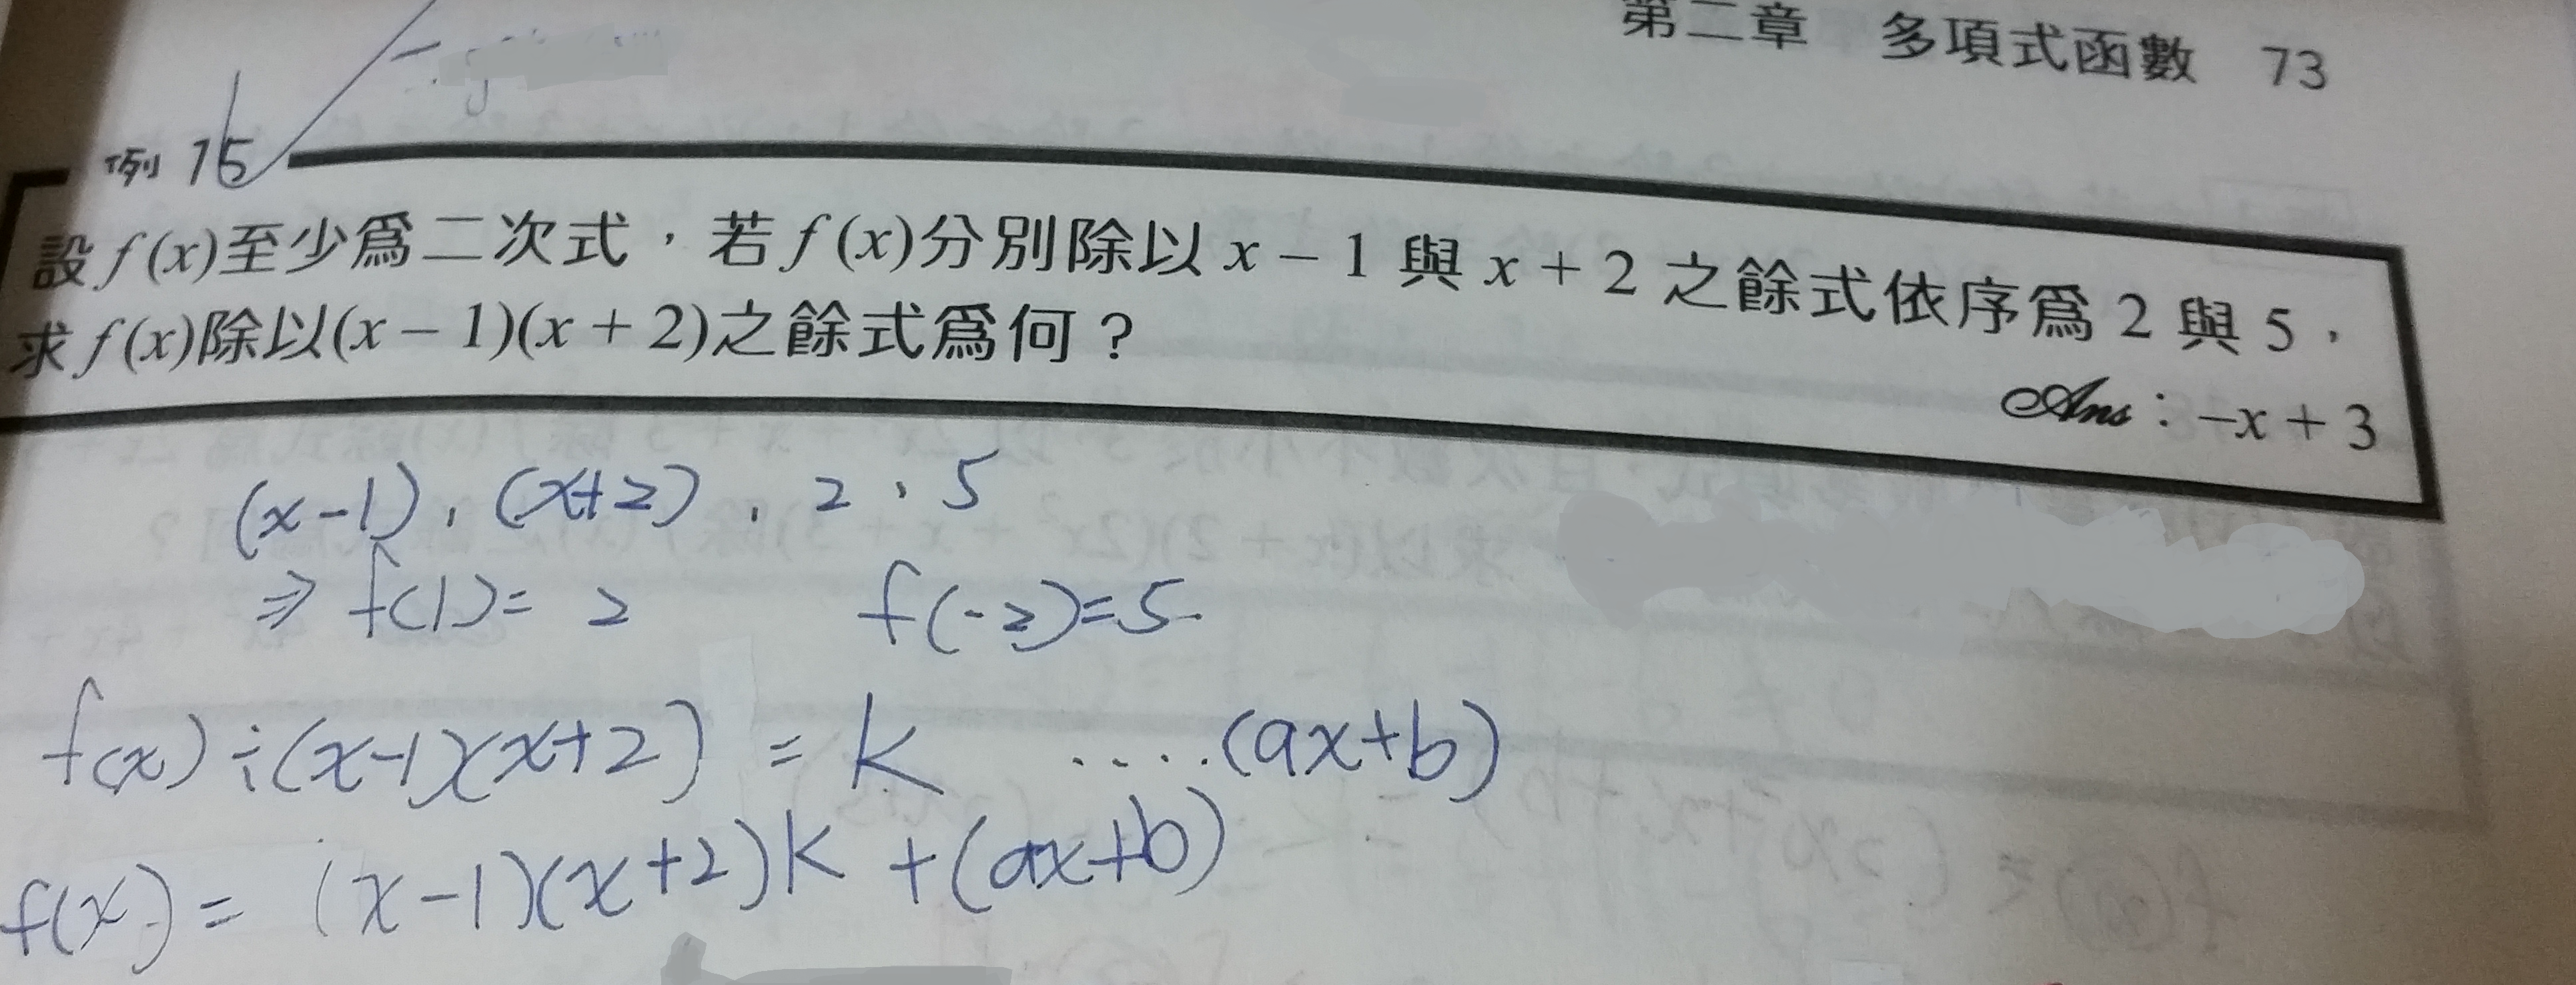 第二章 多項式函數 73
例 15
設 f(x)至少爲二次式，若 f(x)分別除以 x − 1 與 x + 2 之餘式依序爲 2 與 5，
求 f(x)除以(x − 1)(x + 2)之餘式爲何？
Ans：−x + 3
(x-1), (x+2), 2, 5
⇒ f(1)= 2 f(-2)=5
f(x)÷(x-1)(x+2) = K ....(ax+b)
f(x)= (x-1)(x+2)K +(ax+b)